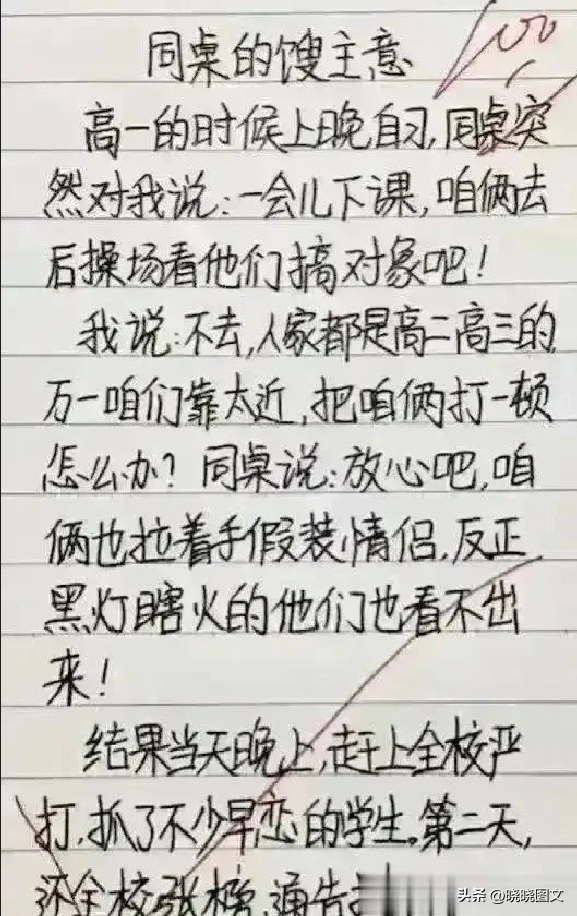 100
同桌的馊主意
高一的时候上晚自习,同桌突
然对我说:一会儿下课,咱俩去
后操场看他们搞对象吧!
我说:不去,人家都是高二高三的,
万一咱们靠太近,把咱俩打一顿
怎么办?同桌说:放心吧,咱
俩也拉着手假装情侣.反正
黑灯瞎火的他们也看不出
来!
结果当天晚上,赶上全校严
打.抓了不少早恋的学生.第二天,
还全校张榜,通告
头条 @晓晓图文